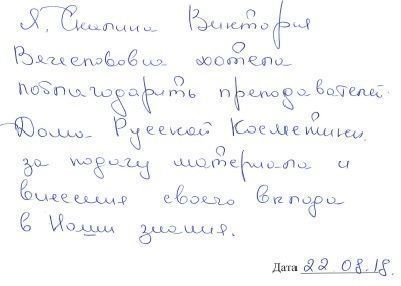 Я, Скапина Виктория
Вячеславовна хотела
поблагодарить преподавателей
Дома Русской Косметики
за подачу материала и
внесения своего вклада
в Наши знания.
Дата 22.08.18.